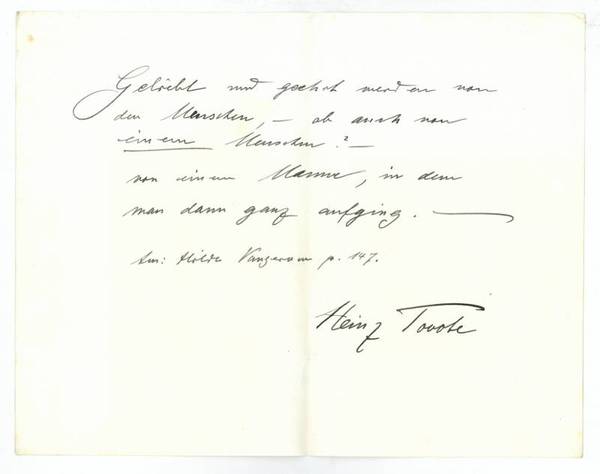 Geliebt und geehrt werden von
den Menschen, – ob auch von
einem Menschen? –
von einem Manne, in dem
man dann ganz aufging. —
Aus: Hilde Vangerow p. 147.
Heinz Tovote